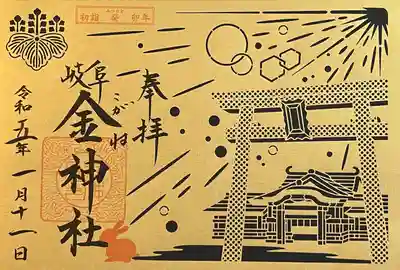 初詣 癸 卯年
奉拝
岐阜
こがね
金神社
令和五年一月十一日